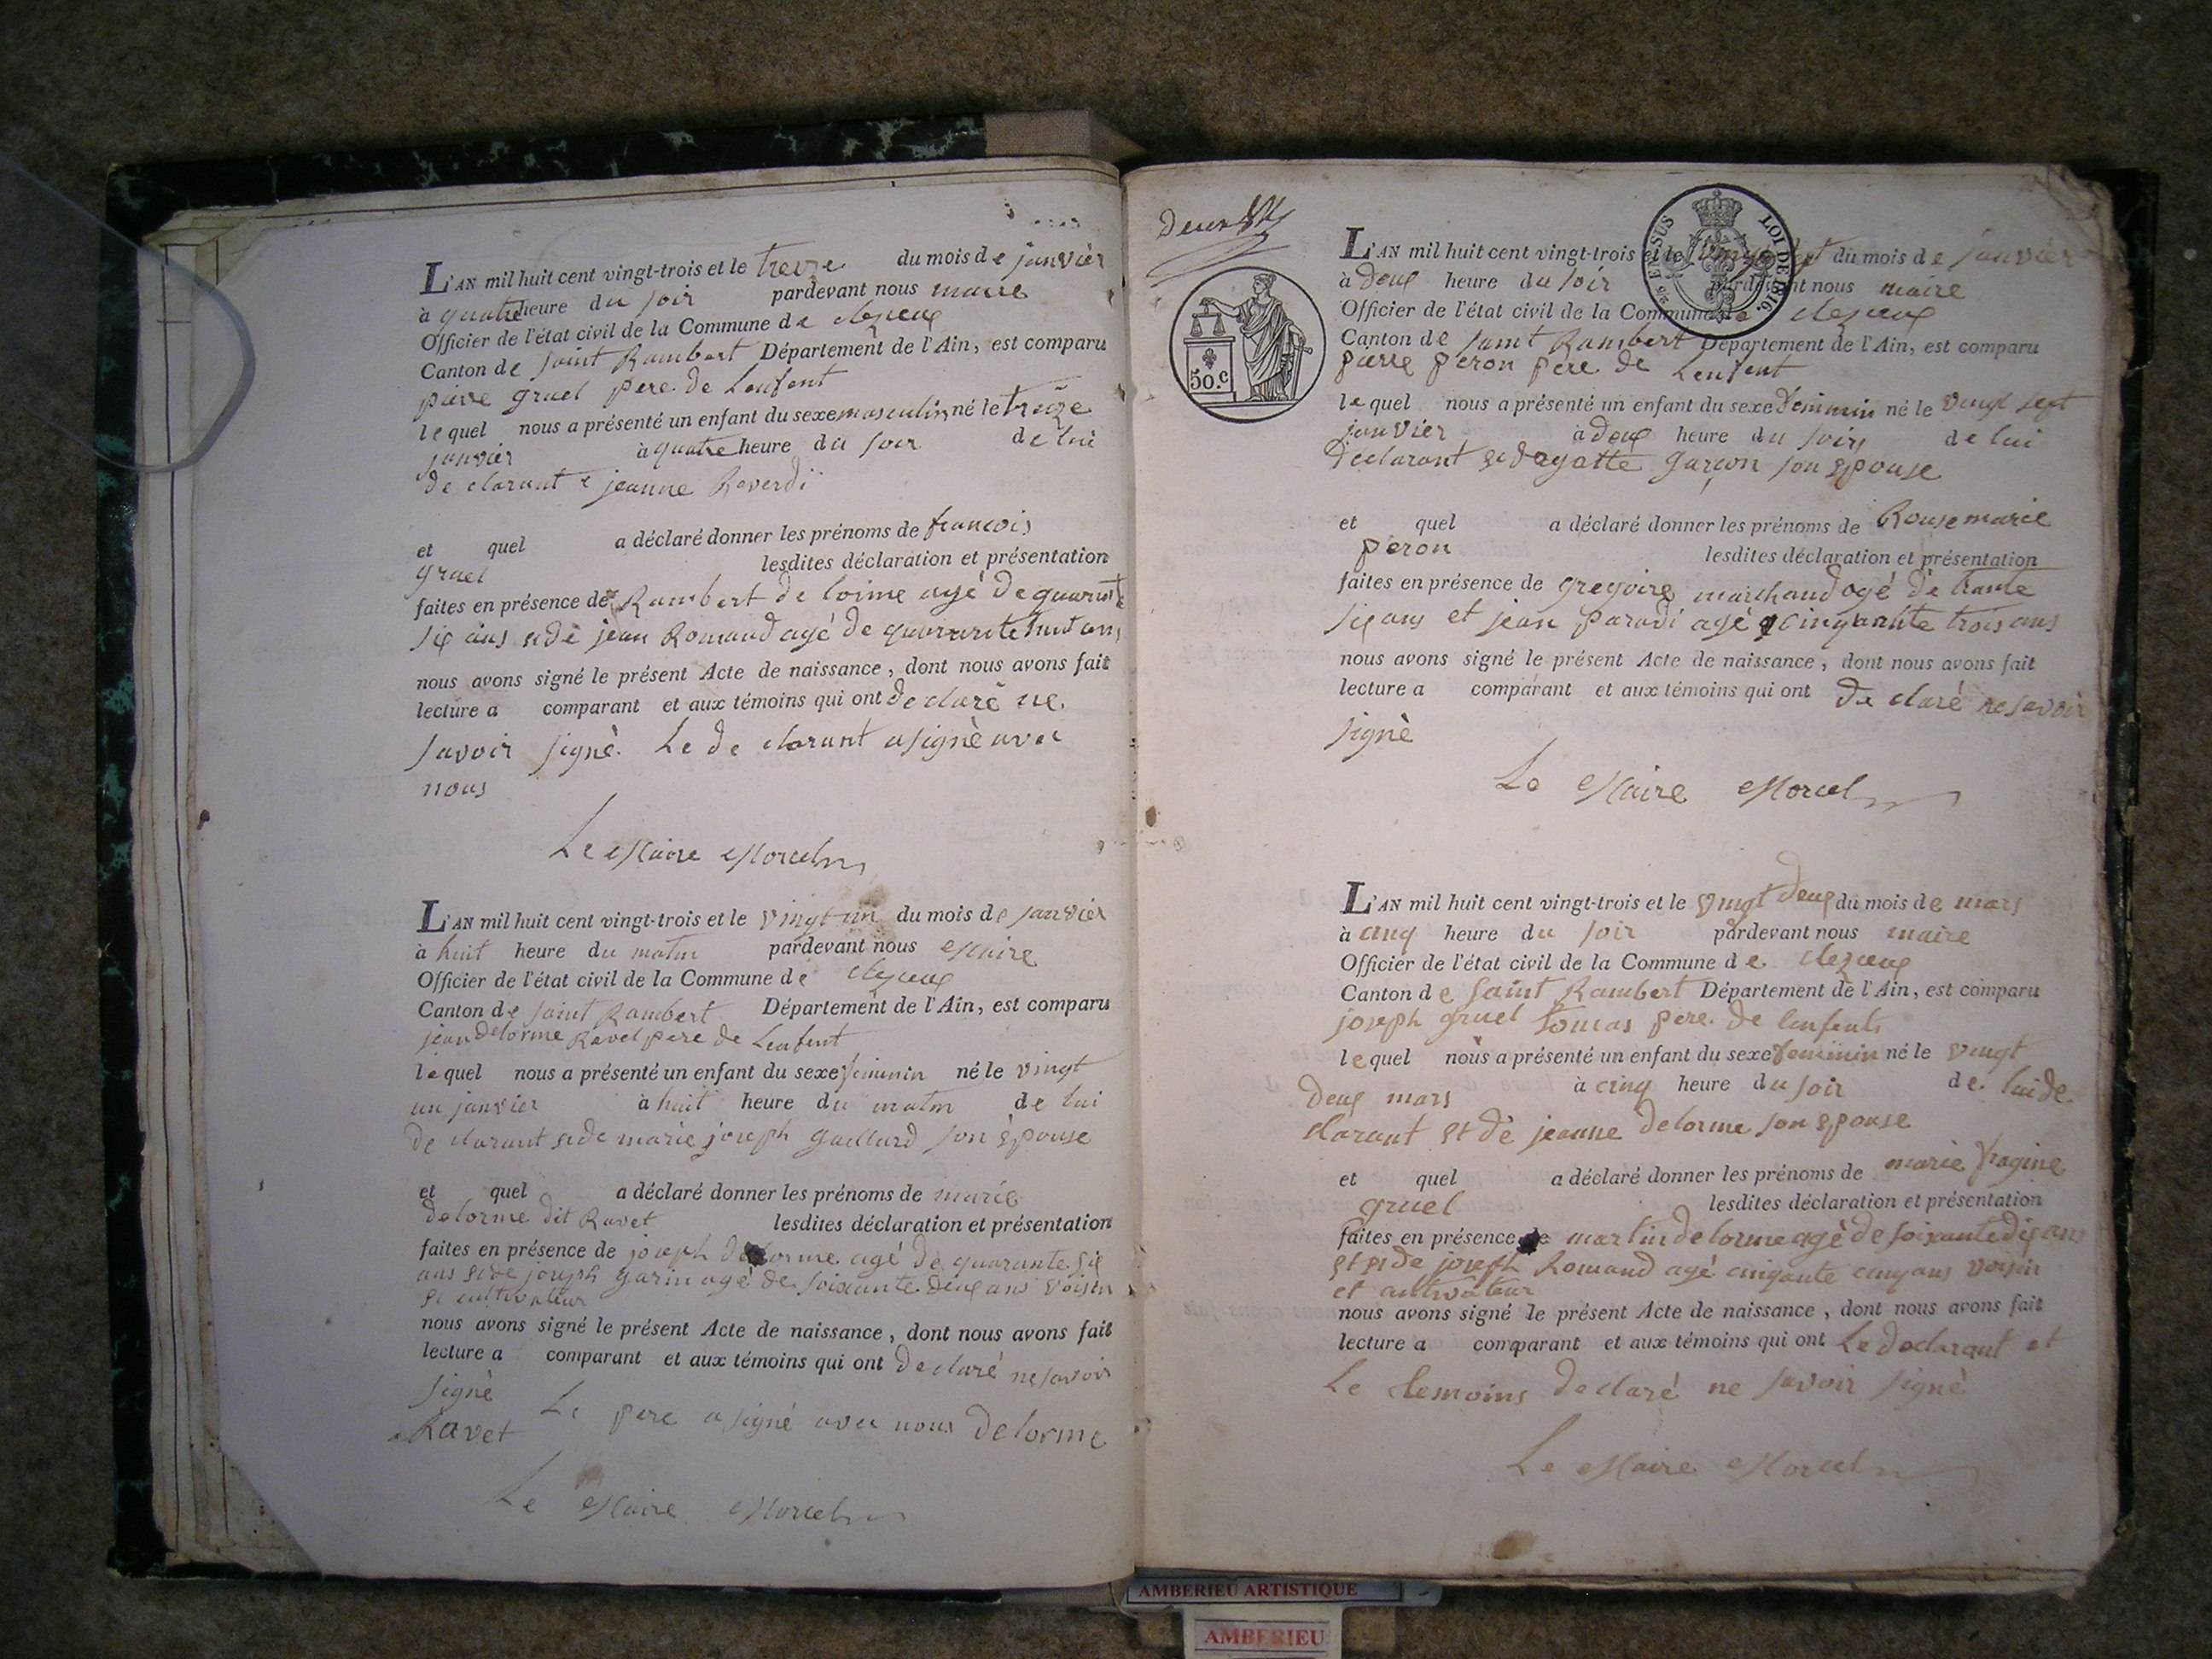 L'AN mil huit cent vingt-trois et le treize du mois de janvier
à quatre heure du soir pardevant nous maire
Officier de l'état civil de la Commune de clezieux
Canton de saint Rambert Département de l'Ain, est comparu
piere gruel pere de Lenfent
lequel nous a présenté un enfant du sexe masculin né le treize
janvier à quatre heure du soir de lui
de clarant e jeanne Reverdi
et quel a déclaré donner les prénoms de francois
gruel lesdites déclaration et présentation
faites en présence de Rambert de lorme agé de quarante
six ans et de jean Romand agé de quarante huit ans
nous avons signé le présent Acte de naissance, dont nous avons fait
lecture a comparant et aux témoins qui ont de claré ne
savoir signè Le de clarant a signè avec
nous
Le Maire Morcel
L'AN mil huit cent vingt-trois et le vingt un du mois de janvier
à huit heure du matin pardevant nous Maire
Officier de l'état civil de la Commune de clezieux
Canton de saint Rambert Département de l'Ain, est comparu
jean delorme Ravet pere de Lenfent
lequel nous a présenté un enfant du sexe feminin né le vingt
un janvier à huit heure du matin de lui
de clarant et de marie joseph gaillard son èpouse
et quel a déclaré donner les prénoms de marie
delorme dit Ravet lesdites déclaration et présentation
faites en présence de joseph delorme agé de quarante six
ans et de joseph garin agé de soixante deux ans voisin
et cultivateur
nous avons signé le présent Acte de naissance, dont nous avons fait
lecture a comparant et aux témoins qui ont declaré ne savoir
signè Le pere a signé avec nous delorme
Ravet
Le Maire Morcel
Deux
50.c
EN SUS LOI DE 1816.
L'AN mil huit cent vingt-trois et le vingt sept du mois de janvier
à deux heure du soir pardevant nous maire
Officier de l'état civil de la Commune de clezieux
Canton de saint Rambert Département de l'Ain, est comparu
pierre peron pere de Lenfent
lequel nous a présenté un enfant du sexe feminin né le vingt sept
janvier à deux heure du soir de lui
declarant et garcon son epouse
et quel a déclaré donner les prénoms de Rouse marie
peron lesdites déclaration et présentation
faites en présence de gregoire marchand agé de trante
six ans et jean paradi agé cinquante trois ans
nous avons signé le présent Acte de naissance, dont nous avons fait
lecture a comparant et aux témoins qui ont de claré ne savoir
signè
Le Maire Morcel
L'AN mil huit cent vingt-trois et le vingt deux du mois de mars
à cinq heure du soir pardevant nous maire
Officier de l'état civil de la Commune de clezieux
Canton de saint Rambert Département de l'Ain, est comparu
joseph gruel tomas pere de lenfent
lequel nous a présenté un enfant du sexe feminin né le vingt
deux mars à cinq heure du soir de lui de
clarant et de jeanne delorme son epouse
et quel a déclaré donner les prénoms de marie
gruel lesdites déclaration et présentation
faites en présence de martin delorme agé de soixante dix ans
et de joseph Romand agé cinqante cinq ans voisin
et cultivateur
nous avons signé le présent Acte de naissance, dont nous avons fait
lecture a comparant et aux témoins qui ont Le declarant et
Le temoins declaré ne savoir signè
Le Maire Morcel
AMBERIEU ARTISTIQUE
AMBERIEU